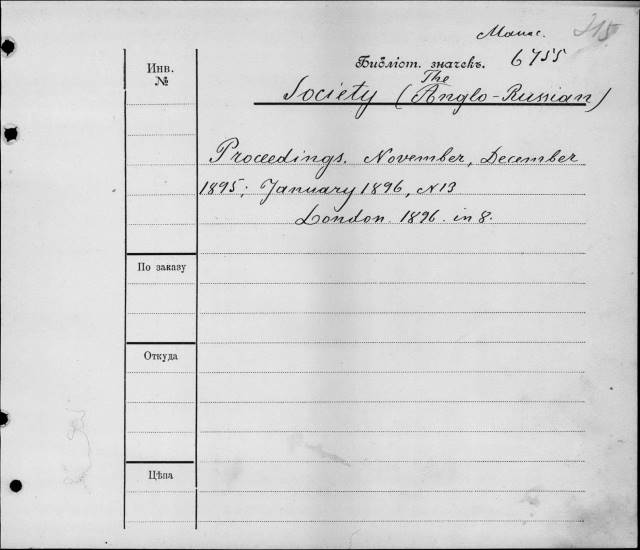 Манс. 215
Библіот. значекъ. 6755
Инв.
№
Society (The Anglo-Russian)
Proceedings. November, December
1895; January 1896, N13
London. 1896. in 8.
По заказу
Откуда
Цѣна